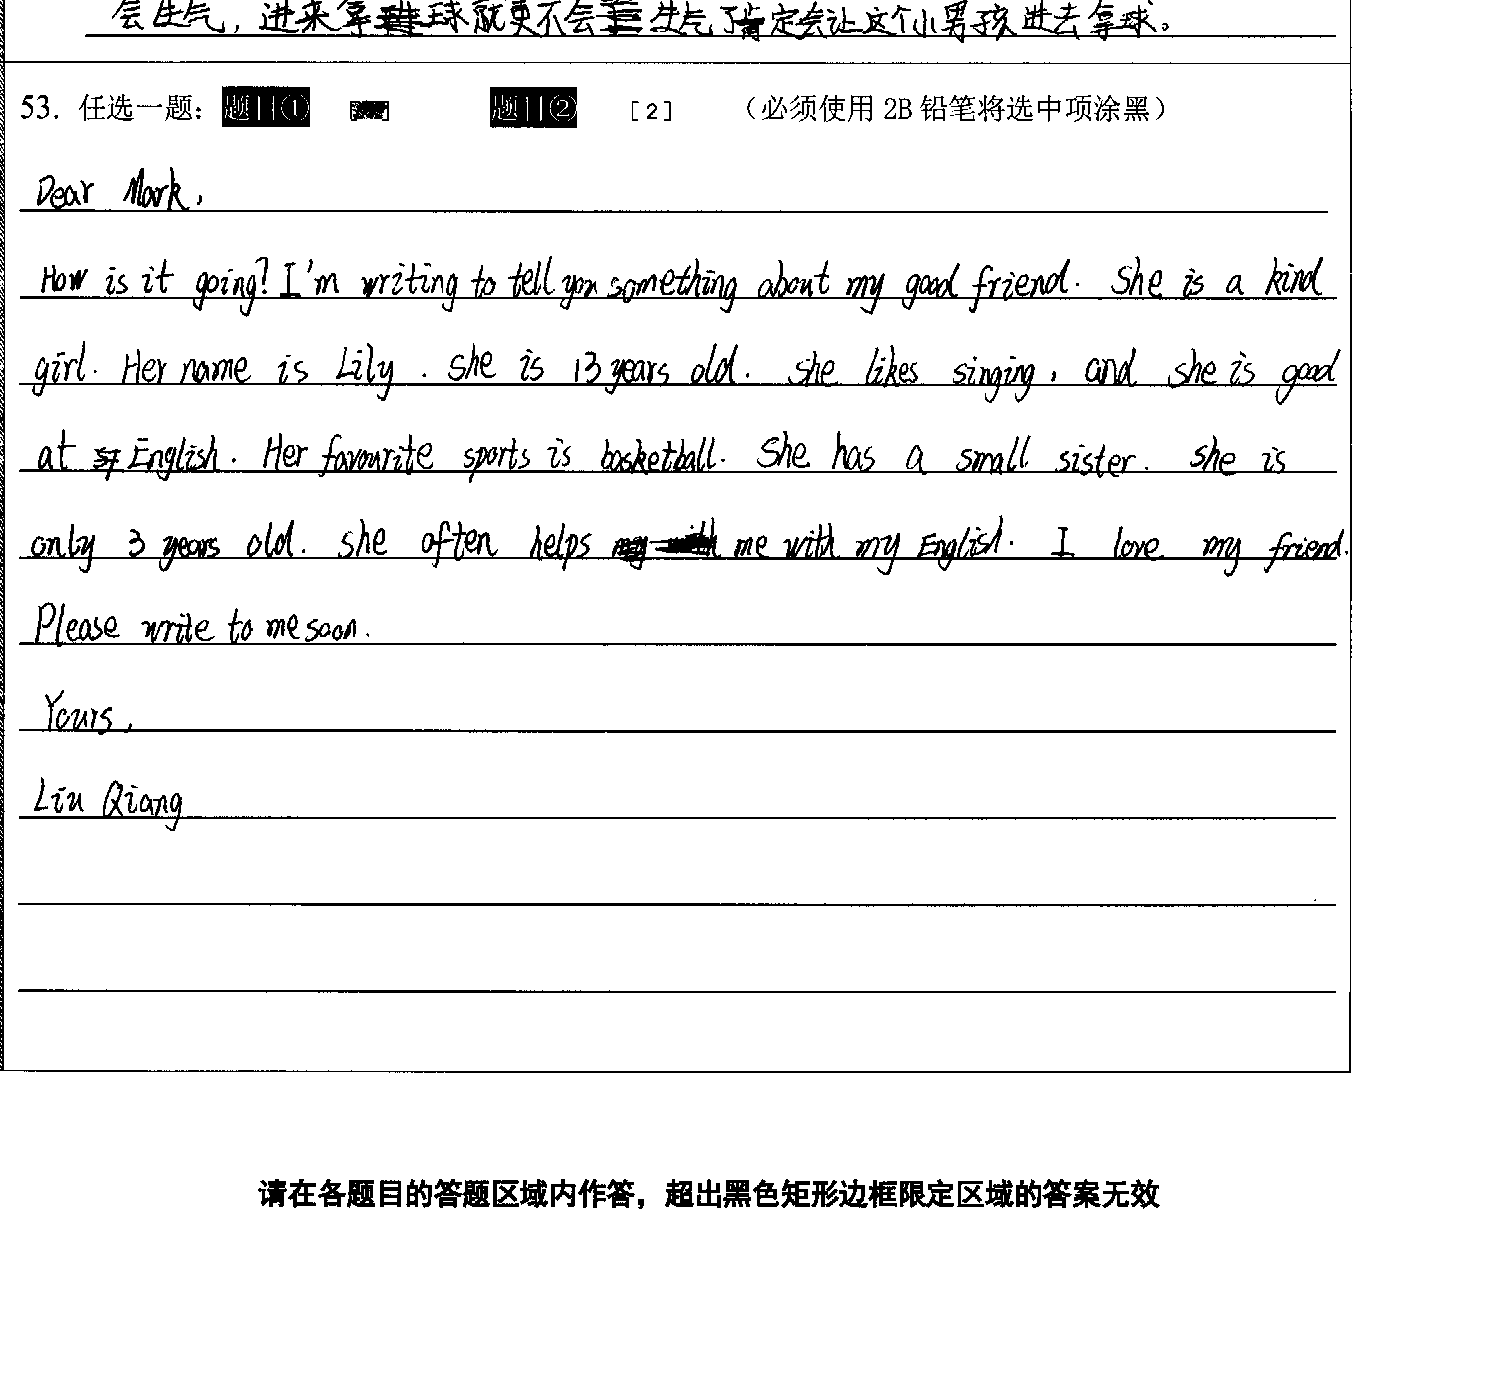 会生气，进来拿球就更不会生气了肯定会让这个小男孩进去拿球。
53. 任选一题： 题目① 题目② [2] （必须使用 2B 铅笔将选中项涂黑）
Dear Mark,
How is it going? I'm writing to tell you something about my good friend. She is a kind
girl. Her name is Lily. She is 13 years old. She likes singing, and she is good
at English. Her favourite sports is basketball. She has a small sister. She is
only 3 years old. She often helps me with my English. I love my friend.
Please write to me soon.
Yours,
Liu Qiang
请在各题目的答题区域内作答，超出黑色矩形边框限定区域的答案无效